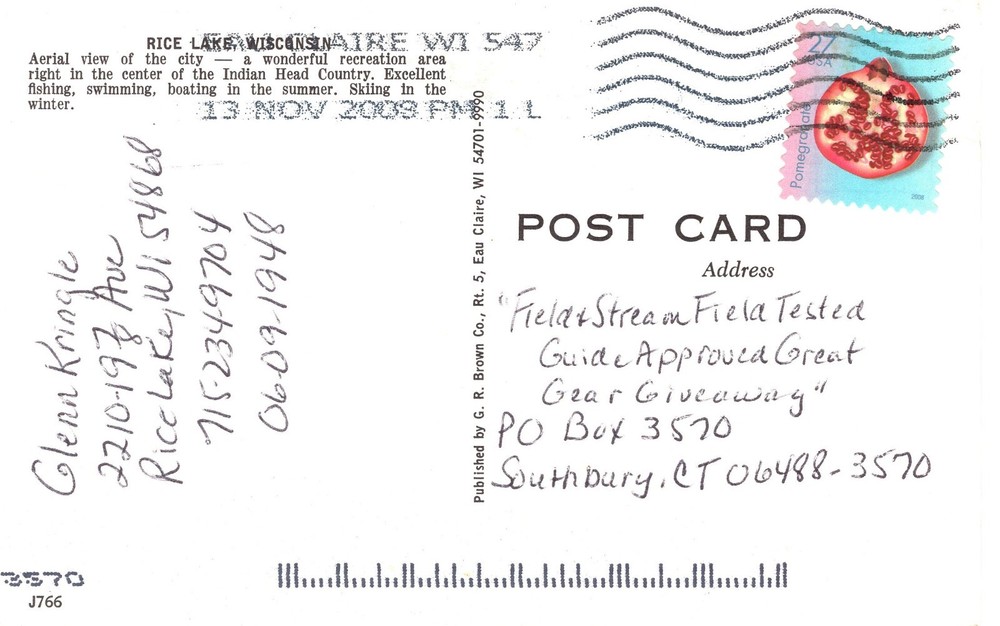 RICE LAKE, WISCONSIN
Aerial view of the city — a wonderful recreation area
right in the center of the Indian Head Country. Excellent
fishing, swimming, boating in the summer. Skiing in the
winter.
EAU CLAIRE WI 547
13 NOV 2009 PM 1 L
27
USA
Pomegranate
2008
Glenn Kringle
2210-19 7/8 Ave
Rice Lake, WI 54868
715-234-9704
06-09-1948
Published by G. R. Brown Co., Rt. 5, Eau Claire, WI 54701-9990
POST CARD
Address
"Field & Stream Field Tested
Guide Approved Great
Gear Giveaway"
PO Box 3570
Southbury, CT 06488-3570
3570
J766